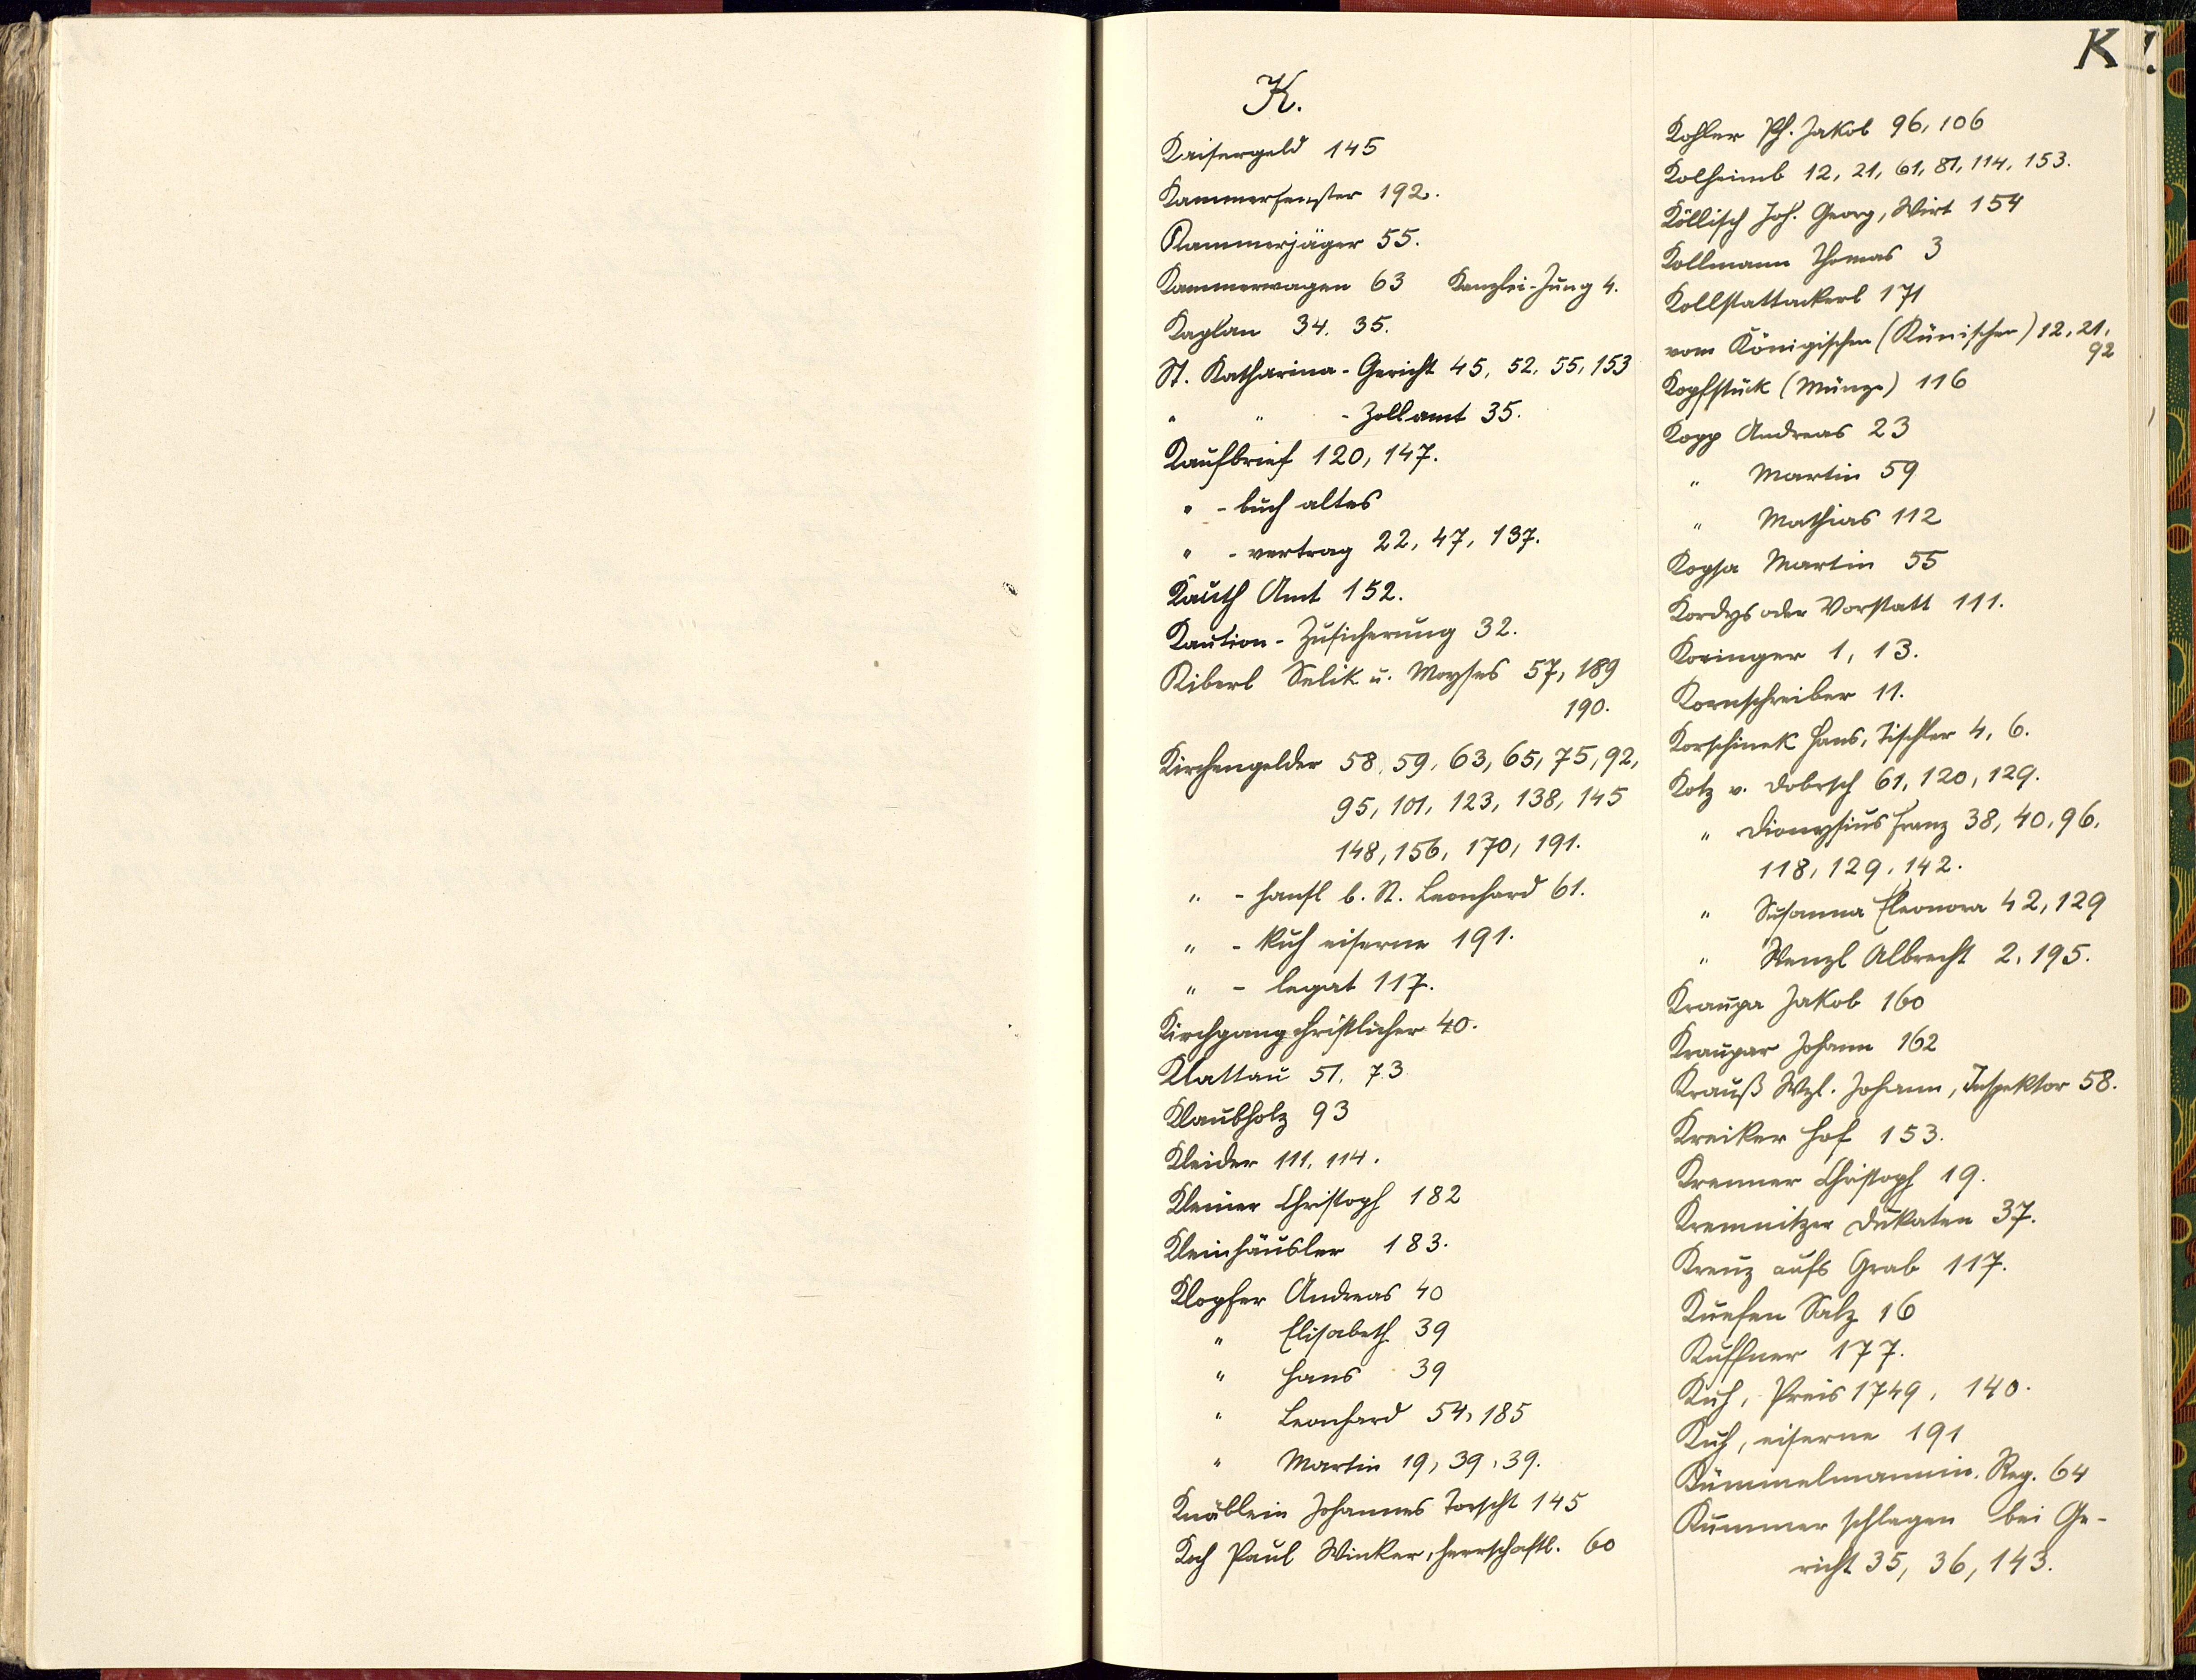 K
K.
Kaisergeld 145
Kammerfenster 192.
Kammerjäger 55.
Kammerwagen 63 Kanzlei-Jung 4.
Kaplan 34. 35.
St. Katharina-Gericht 45, 52, 55, 153
" " -Zollamt 35.
Kaufbrief 120, 147.
" -buch altes
" -vertrag 22, 47, 137.
Kauth Amt 152.
Kaution-Zusicherung 32.
Kiberl Selik u. Moyses 57, 189
190.
Kirchengelder 58, 59, 63, 65, 75, 92,
95, 101, 123, 138, 145
148, 156, 170, 191.
" -hansl b. St. Leonhard 61.
" -kuh eiserne 191.
" -legat 117.
Kirchgang christlicher 40.
Klattau 51, 73
Klaubholz 93
Kleider 111, 114.
Kleiner Christoph 182
Kleinhäusler 183.
Klopfer Andreas 40
" Elisabeth 39
" Hans 39
" Leonhard 54, 185
" Martin 19, 39, 39.
Knäblein Johannes Torscht 145
Koch Paul Winker, herrschaftl. 60
Kohler Ph. Jakob 96, 106
Kolheimb 12, 21, 61, 81, 114, 153.
Köllisch Joh. Georg, Wirt 154
Kollmann Thomas 3
Kollstattackerl 171
vom Königischen (Künischen) 12, 21,
92
Kopfstück (Münze) 116
Kopp Andreas 23
" Martin 59
" Mathias 112
Kopsa Martin 55
Kordys oder Vorstatt 111.
Koringer 1, 13.
Kornschreiber 11.
Korschinek Hans, Tischler 4, 6.
Kotz v. Dobrsch 61, 120, 129.
" Dionysius Franz 38, 40, 96,
118, 129, 142.
" Susanna Eleonora 42, 129
" Wenzl Albrecht 2, 195.
Kraupa Jakob 160
Kraupar Johann 162
Krauß Wzl. Johann, Inspektor 58.
Kreiker Hof 153.
Krenner Christoph 19.
Kremnitzer Dukaten 37.
Kreuz aufs Grab 117.
Kuefen Salz 16
Kuffner 177.
Kuh, Preis 1749, 140.
Kuh, eiserne 191
Kümmelmannin, Reg. 64
Kummer schlagen bei Ge-
richt 35, 36, 143.